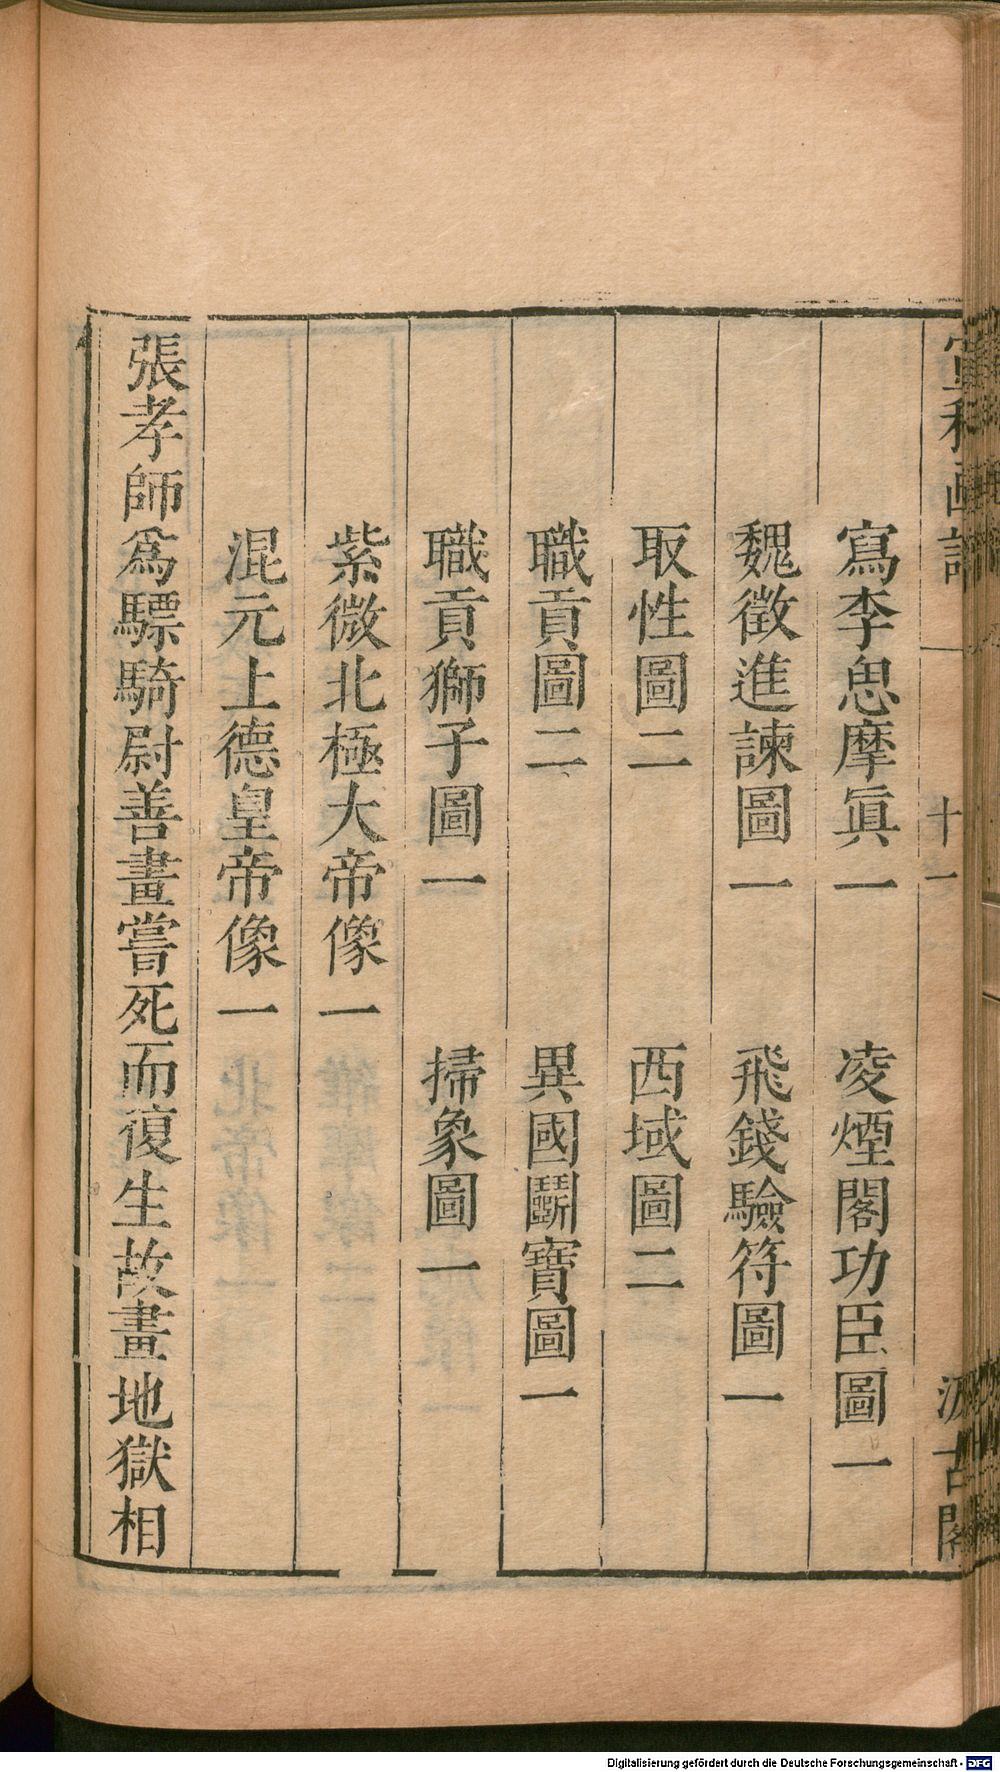 宣和画譜 十一 汲古閣
寫李思摩眞一 凌煙閣功臣圖一
魏徵進諫圖一 飛錢驗符圖一
取性圖二 西域圖二
職貢圖二 異國鬭寶圖一
職貢獅子圖一 掃象圖一
紫微北極大帝像一
混元上德皇帝像一
張孝師爲驃騎尉善畫嘗死而復生故畫地獄相
Digitalisierung gefördert durch die Deutsche Forschungsgemeinschaft - DFG